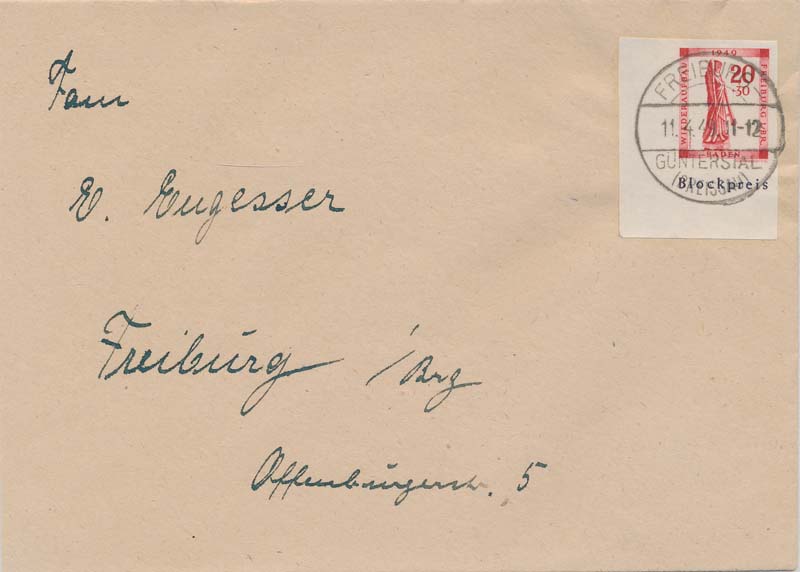 1949
WIEDERAUFBAU
20
+30
FREIBURG I/BR.
BADEN
Blockpreis
FREIBURG
11.4.49.11-12
GÜNTERSTAL
(BREISGAU)
Fam
E. Eugesser
Freiburg /Brg
Offenburgerstr. 5